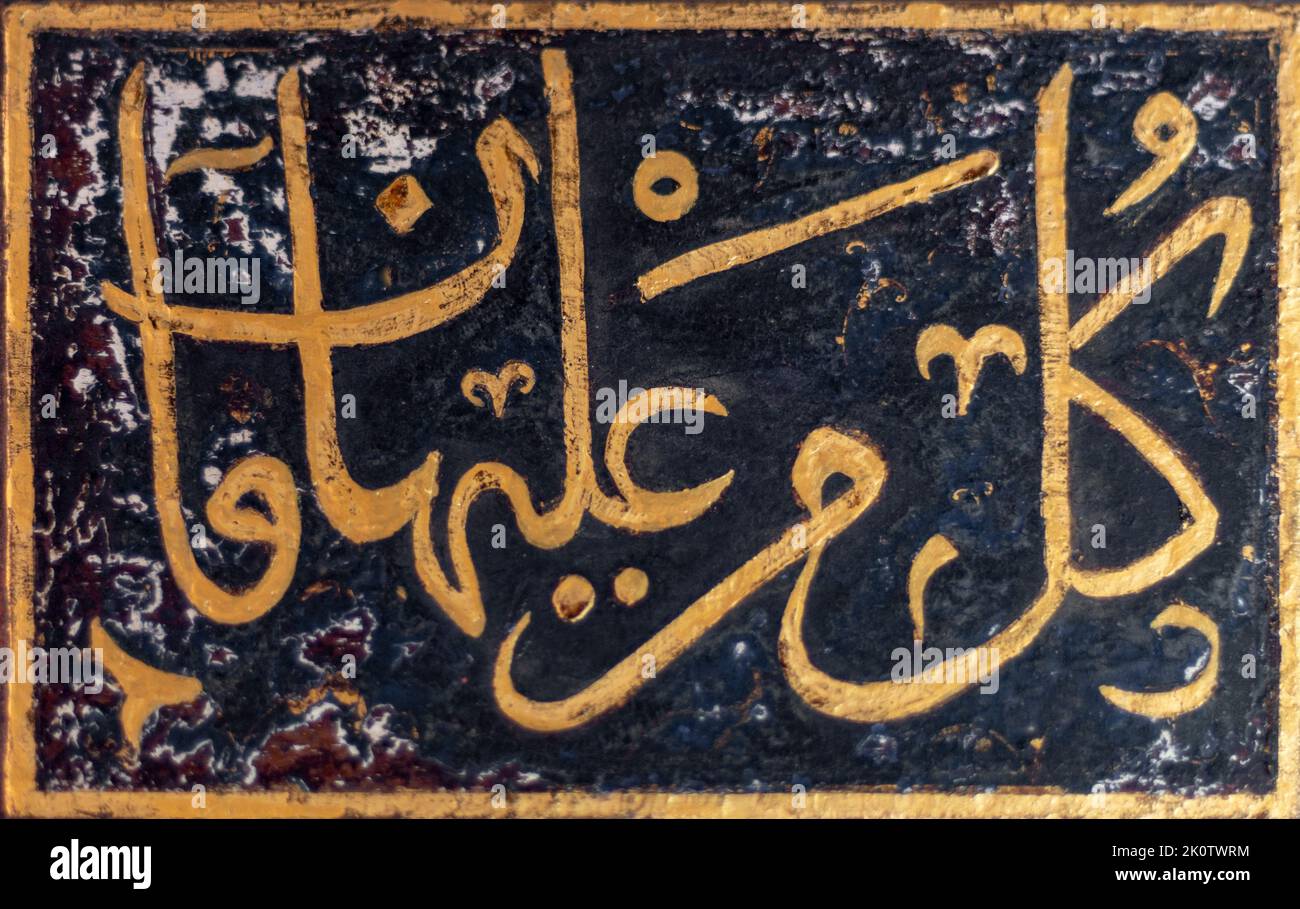 كُلُّ مَنْ عَلَيْهَا فَانٍ
a
alamy
Image ID: 2K0TWRM
www.alamy.com